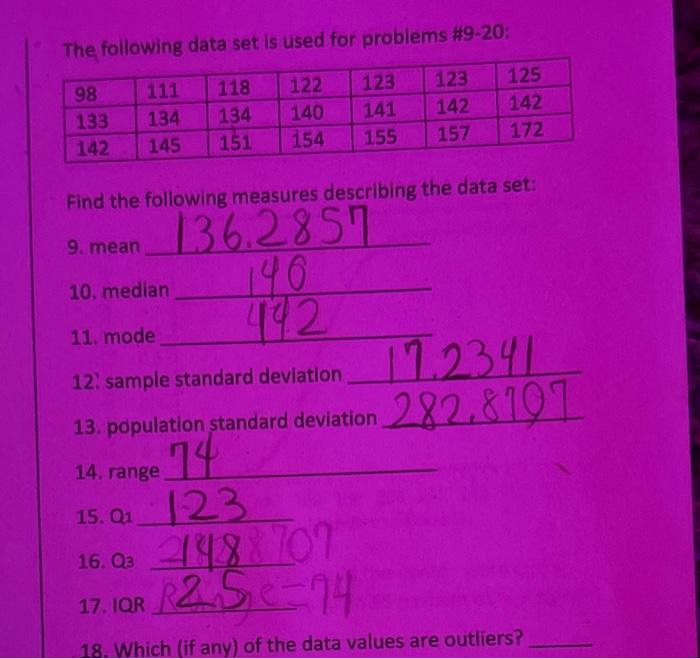 The following data set is used for problems #9-20:
98 111 118 122 123 123 125
133 134 134 140 141 142 142
142 145 151 154 155 157 172
Find the following measures describing the data set:
9. mean 136.2857
10. median 140
11. mode 142
12. sample standard deviation 17.2341
13. population standard deviation 282.8707
14. range 74
15. Q1 123
16. Q3 148
17. IQR 25
18. Which (if any) of the data values are outliers?